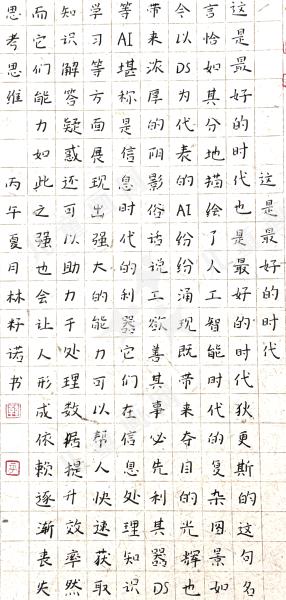 这是最好的时代
这是最好的时代也是最好的时代狄更斯的这句名
言恰如其分地描绘了人工智能时代的复杂图景如
今以DS为代表的AI纷纷涌现既带来夺目的光辉也
带来浓厚的阴影俗话说工欲善其事必先利其器DS
等AI堪称是信息时代的利器它们在信息处理知识
学习等方面展现出强大的能力可以帮人快速获取
知识解答疑惑还可以助力于处理数据提升效率然
而它们能力如此之强也会让人形成依赖逐渐丧失
思考思维 丙午夏月林籽诺书